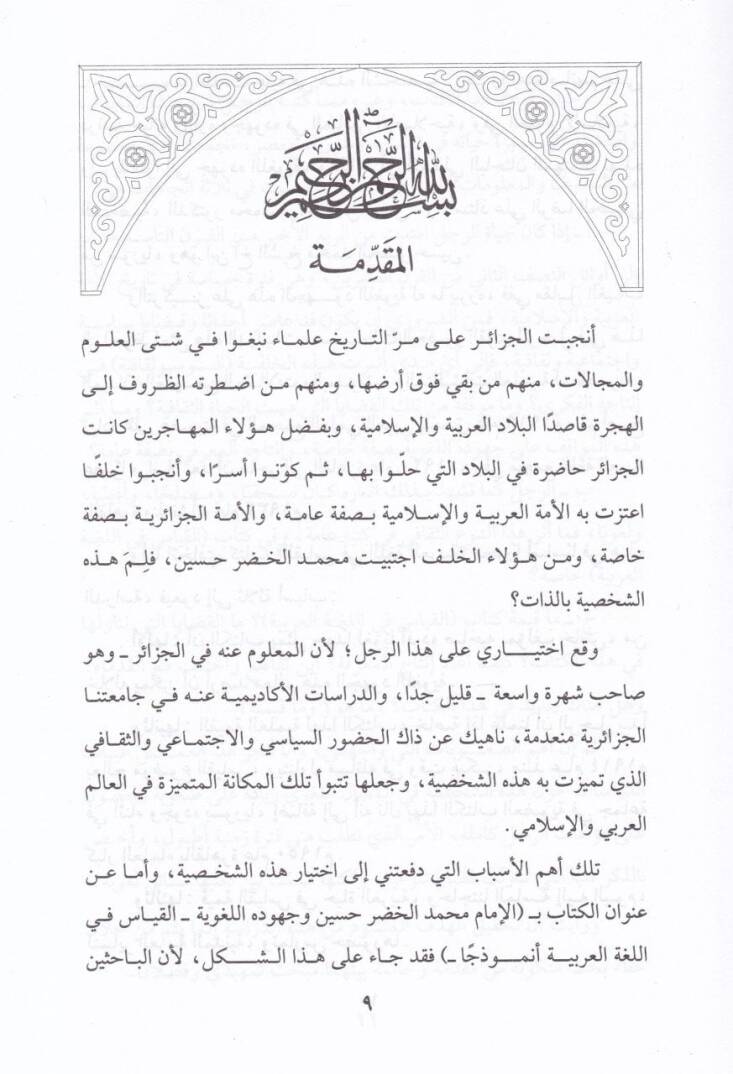 بسم الله الرحمن الرحيم
المقدّمة
أنجبت الجزائر على مرّ التاريخ علماء نبغوا في شتى العلوم
والمجالات، منهم من بقي فوق أرضها، ومنهم من اضطرته الظروف إلى
الهجرة قاصدًا البلاد العربية والإسلامية، وبفضل هؤلاء المهاجرين كانت
الجزائر حاضرة في البلاد التي حلّوا بها، ثم كوّنوا أسرًا، وأنجبوا خلفًا
اعتزت به الأمة العربية والإسلامية بصفة عامة، والأمة الجزائرية بصفة
خاصة، ومن هؤلاء الخلف اجتبيت محمد الخضر حسين، فلِمَ هذه
الشخصية بالذات؟
وقع اختياري على هذا الرجل؛ لأن المعلوم عنه في الجزائر ـ وهو
صاحب شهرة واسعة ـ قليل جدًا، والدراسات الأكاديمية عنه في جامعتنا
الجزائرية منعدمة، ناهيك عن ذاك الحضور السياسي والاجتماعي والثقافي
الذي تميزت به هذه الشخصية، وجعلها تتبوأ تلك المكانة المتميزة في العالم
العربي والإسلامي.
تلك أهم الأسباب التي دفعتني إلى اختيار هذه الشخصية، وأما عن
عنوان الكتاب بـ (الإمام محمد الخضر حسين وجهوده اللغوية ـ القياس في
اللغة العربية أنموذجًا ـ) فقد جاء على هذا الشكل، لأن الباحثين
٩